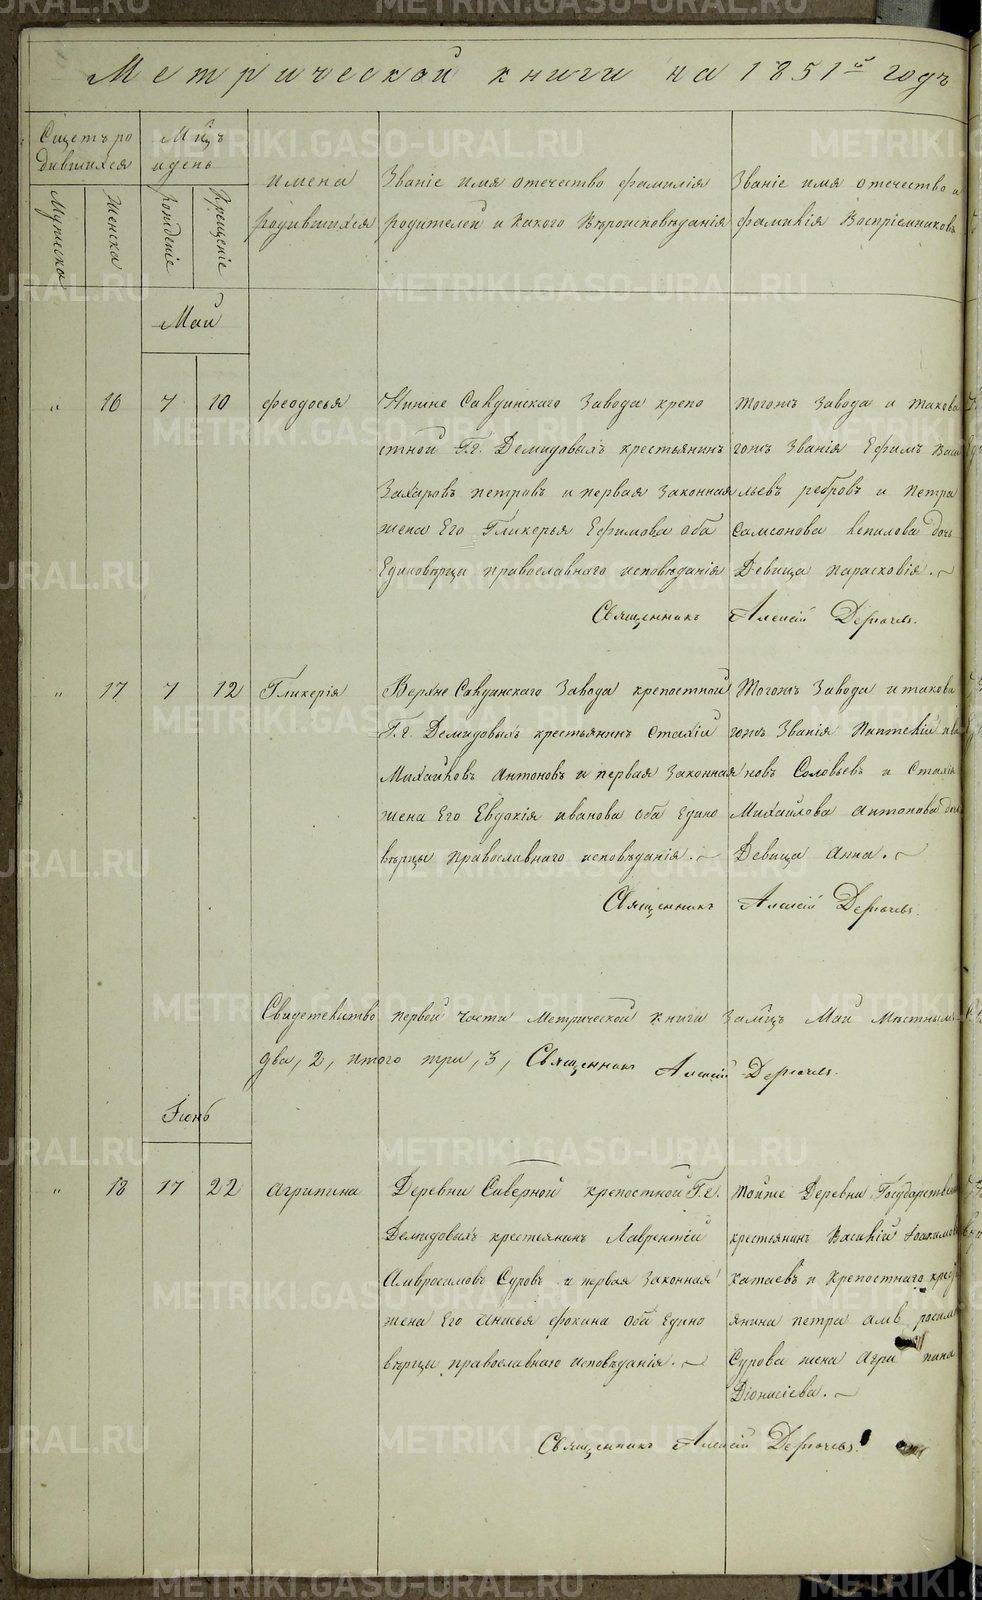 Метрической книги на 1851й годъ
Счетъ родившихся
Мужеска
Женска
Мцъ и день
рожденіе
Крещеніе
имена родившихся
Званіе имя отечество фамилія
родителей и какого вѣроисповѣданія
Званіе имя отечество и
фамилія Воспріемниковъ
Май
" 16 7 10 Феодосья
Нижне Салдинскаго Завода крепо
стной Г.г. Демидовыхъ крестьянинъ
Захаровъ петровъ и первая законная
жена Его Гликерья Ефимова оба
Единовѣрцы православнаго исповѣданія
тогожъ завода и такова
гожъ званія Ефимъ Васи
льевъ ребровъ и петра
Самсонова дочь
Девица парасковія.
Священникъ Алексій
" 17 7 12 Гликерія
Верхне Салдинскаго Завода крепостной
Г.г. Демидовыхъ крестьянинъ Стахій
Михайловъ антоновъ и первая законная
жена Его Евдокія иванова оба Едино
вѣрцы православнаго исповѣданія.
тогожъ завода и такова
гожъ званія ива
новъ Соловьевъ и Стахія
Михайлова антонова дочь
Девица анна.
Священникъ Алексій
Свидетельство первой части Метрической книги за мцъ Май
два, 2, итого три, 3, Священникъ Алексій
Іюнь
" 18 17 22 агрипина
Деревни Северной крепостной Г.г.
Демидовыхъ крестьянинъ Лаврентій
Амвросимовъ Суровъ и первая законная
жена Его анисья фокина оба Едино
вѣрцы православнаго исповѣданія.
тойже Деревни Государствен
крестьянинъ Василій
катаевъ и крепостнаго крес
янина петра амвросима
Сурова жена агрипина
Діонисіева.
Священникъ Алексій
METRIKI.GASO-URAL.RU